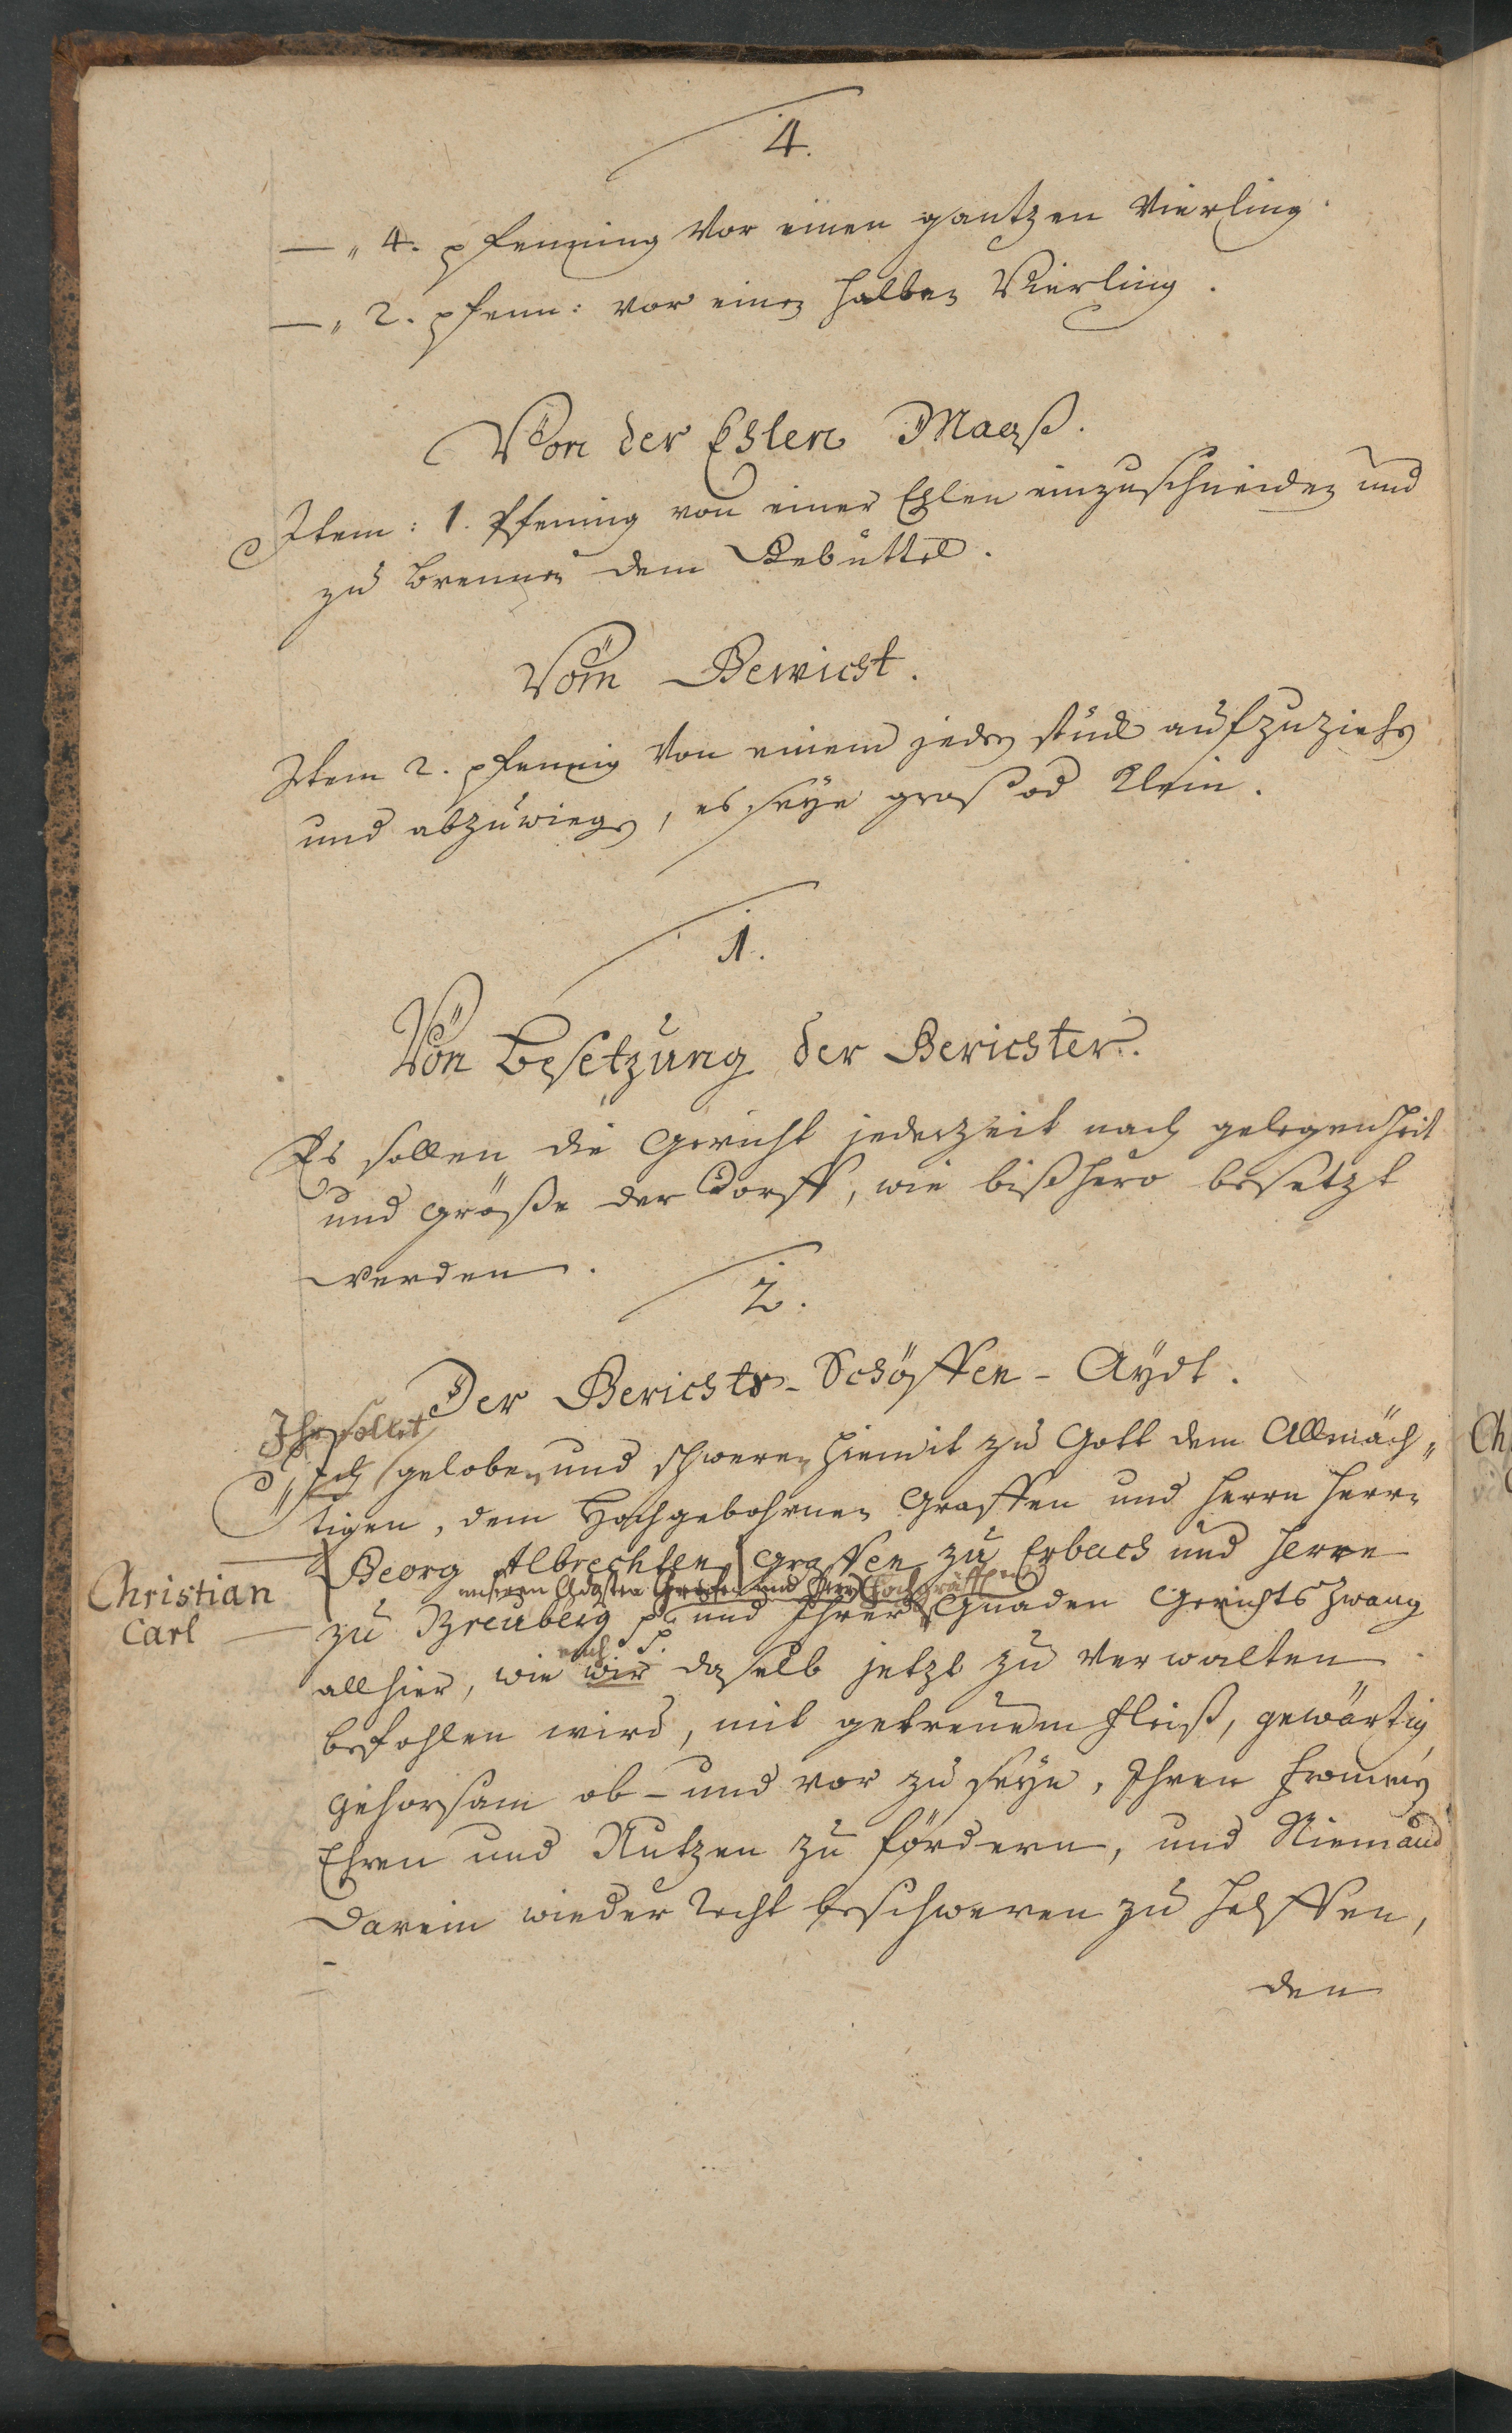 4.
— " 4. pfenning Vor einen gantzen Vierling.
— " 2. pfenn: vor einen halben Vierling.
Von der Ehlen Maaß.
Item: 1. Pfening von einer Ehlen einzuschneiden und
zu brennen dem Gebüttel.
Vom Gewicht.
Item 2. pfennig Von einem jeden stück aufzuziehen
und abzuwiegen, es seye groß od klein.
1.
Von Besetzung der Gerichter.
Es sollen die Gericht jederzeit nach gelegenheit
und größe der Dorff, wie bißhero besetzt
werden.
2.
Der Gerichts-Schöffen-Aydt.
Ihr sollet
Ich geloben und schweren hiemit zu Gott dem Allmäch„
tigen, dem Hochgebohrnen Graffen und Herrn Herrn
Georg Albrechten Graffen zu Erbach und Herrn
Christian
Carl
unserm Gdgsten Grafen und Herrn Hochgräffl
zu Breuberg p. und Ihrer Gnaden Gerichts Zwang
euch
allhier, wie wir daselb jetzt zu Verwalten
befohlen wird, mit getreuem fleiß, gewärtig
gehorsam ob- und vor zu seyn, Ihren frommen
Ehren und Nutzen zu fördern, und Niemand
darein wieder Recht beschweren zu helffen,
den
Ch